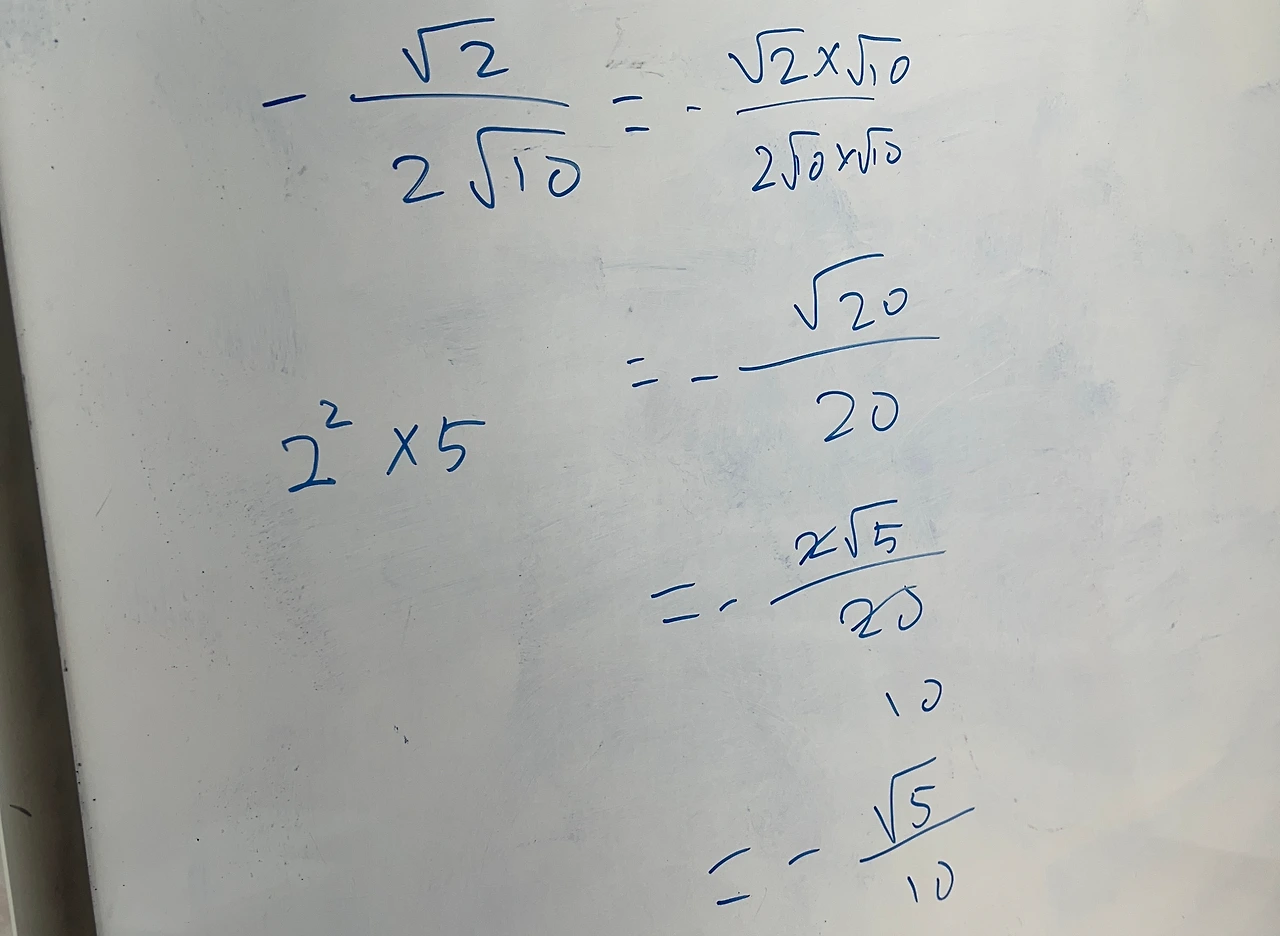 - √2 / 2√10 = - √2×√10 / 2√10×√10
= - √20 / 20
2² × 5
= - 2√5 / 20
10
= - √5 / 10